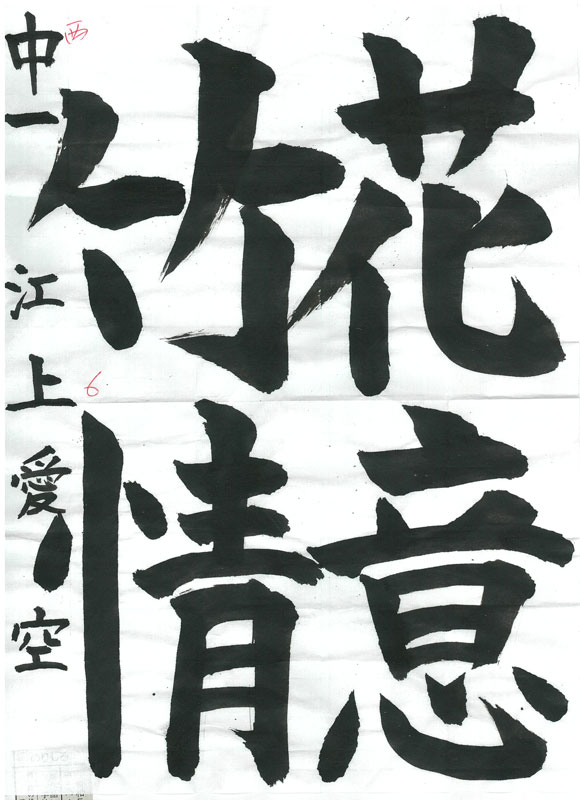 花意
竹情
中一 江上愛空
西
6